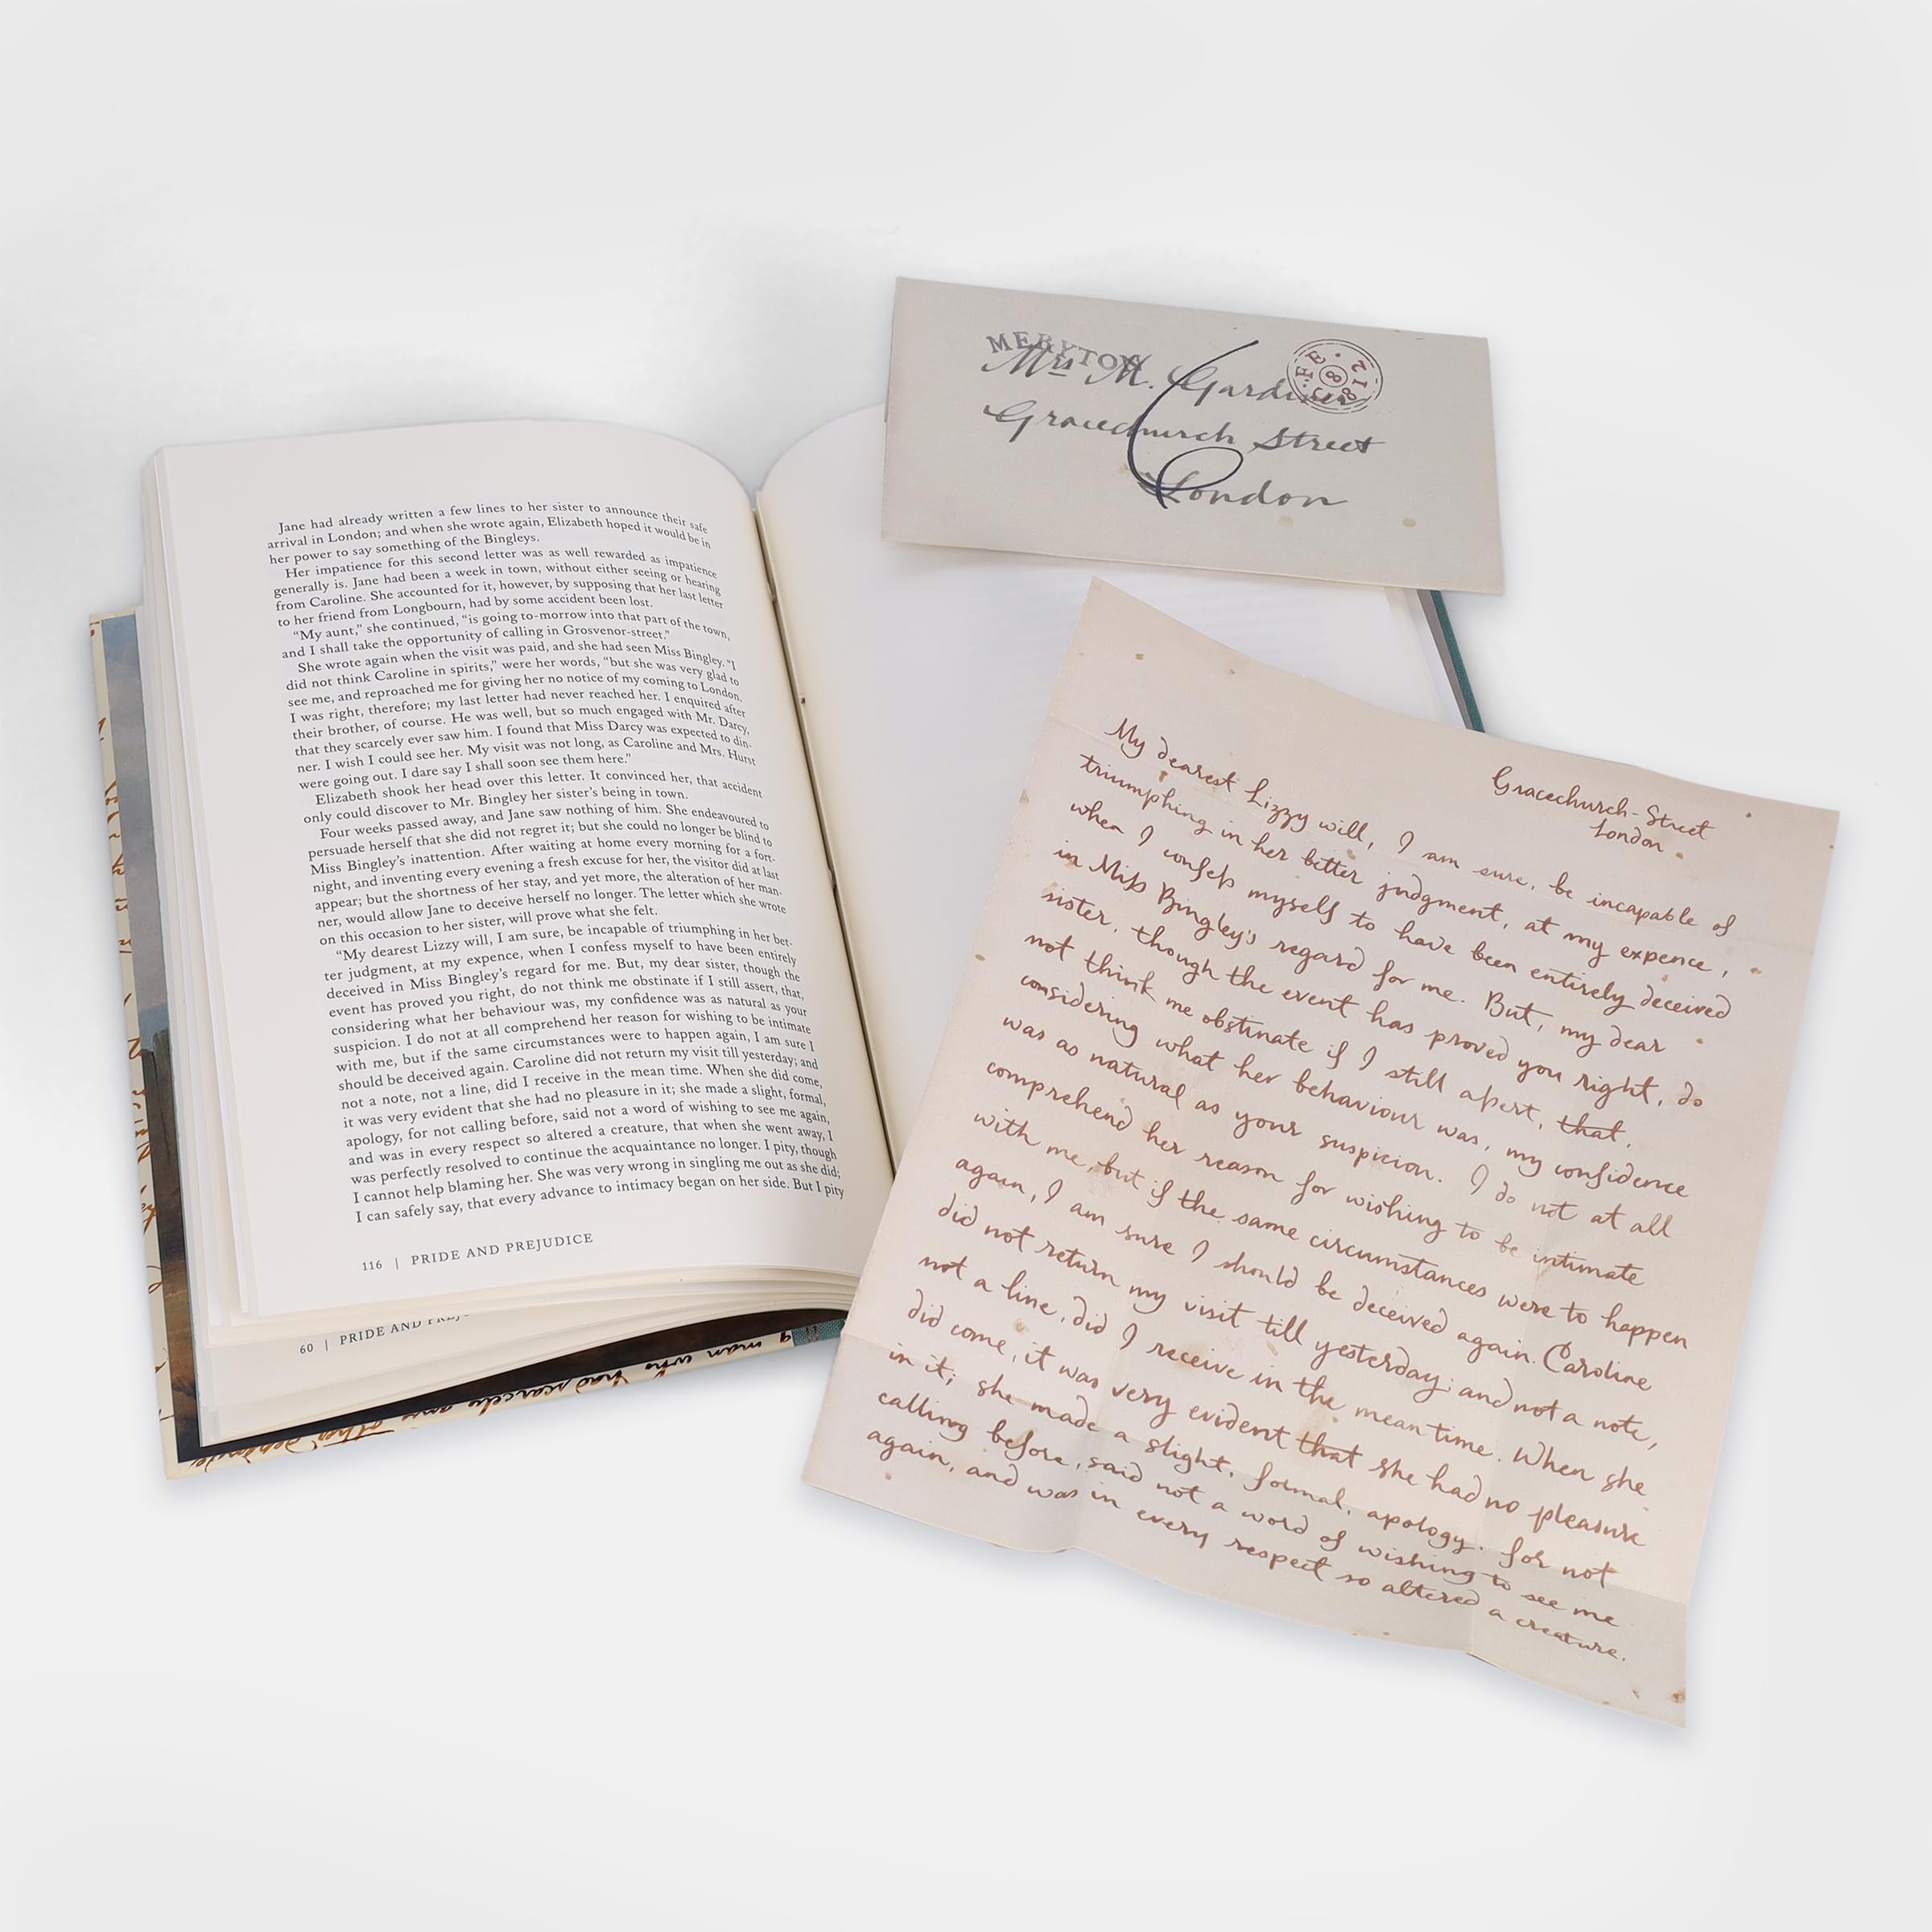 Jane had already written a few lines to her sister to announce their safe
arrival in London; and when she wrote again, Elizabeth hoped it would be in
her power to say something of the Bingleys.
Her impatience for this second letter was as well rewarded as impatience
generally is. Jane had been a week in town, without either seeing or hearing
from Caroline. She accounted for it, however, by supposing that her last letter
to her friend from Longbourn, had by some accident been lost.
"My aunt," she continued, "is going to-morrow into that part of the town,
and I shall take the opportunity of calling in Grosvenor-street."
She wrote again when the visit was paid, and she had seen Miss Bingley. "I
did not think Caroline in spirits," were her words, "but she was very glad to
see me, and reproached me for giving her no notice of my coming to London.
I was right, therefore; my last letter had never reached her. I enquired after
their brother, of course. He was well, but so much engaged with Mr. Darcy,
that they scarcely ever saw him. I found that Miss Darcy was expected to din-
ner. I wish I could see her. My visit was not long, as Caroline and Mrs. Hurst
were going out. I dare say I shall soon see them here."
Elizabeth shook her head over this letter. It convinced her, that accident
only could discover to Mr. Bingley her sister's being in town.
Four weeks passed away, and Jane saw nothing of him. She endeavoured to
persuade herself that she did not regret it; but she could no longer be blind to
Miss Bingley's inattention. After waiting at home every morning for a fort-
night, and inventing every evening a fresh excuse for her, the visitor did at last
appear; but the shortness of her stay, and yet more, the alteration of her man-
ner, would allow Jane to deceive herself no longer. The letter which she wrote
on this occasion to her sister, will prove what she felt.
"My dearest Lizzy will, I am sure, be incapable of triumphing in her bet-
ter judgment, at my expence, when I confess myself to have been entirely
deceived in Miss Bingley's regard for me. But, my dear sister, though the
event has proved you right, do not think me obstinate if I still assert, that,
considering what her behaviour was, my confidence was as natural as your
suspicion. I do not at all comprehend her reason for wishing to be intimate
with me, but if the same circumstances were to happen again, I am sure I
should be deceived again. Caroline did not return my visit till yesterday; and
not a note, not a line, did I receive in the mean time. When she did come,
it was very evident that she had no pleasure in it; she made a slight, formal,
apology, for not calling before, said not a word of wishing to see me again,
and was in every respect so altered a creature, that when she went away, I
was perfectly resolved to continue the acquaintance no longer. I pity, though
I cannot help blaming her. She was very wrong in singling me out as she did;
I can safely say, that every advance to intimacy began on her side. But I pity
116 | PRIDE AND PREJUDICE
60 | PRIDE AND
man who
had scarcely any other
MERYTON
FE 8 1812
Mrs M. Gardiner
Gracechurch Street
London
Gracechurch-Street
London
My dearest Lizzy will, I am sure, be incapable of
triumphing in her better judgment, at my expence,
when I confess myself to have been entirely deceived
in Miss Bingley's regard for me. But, my dear
sister, though the event has proved you right, do
not think me obstinate if I still assert, that,
considering what her behaviour was, my confidence
was as natural as your suspicion. I do not at all
comprehend her reason for wishing to be intimate
with me, but if the same circumstances were to happen
again, I am sure I should be deceived again. Caroline
did not return my visit till yesterday; and not a note,
not a line, did I receive in the mean time. When she
did come, it was very evident that she had no pleasure
in it; she made a slight, formal, apology, for not
calling before, said not a word of wishing to see me
again, and was in every respect so altered a creature.